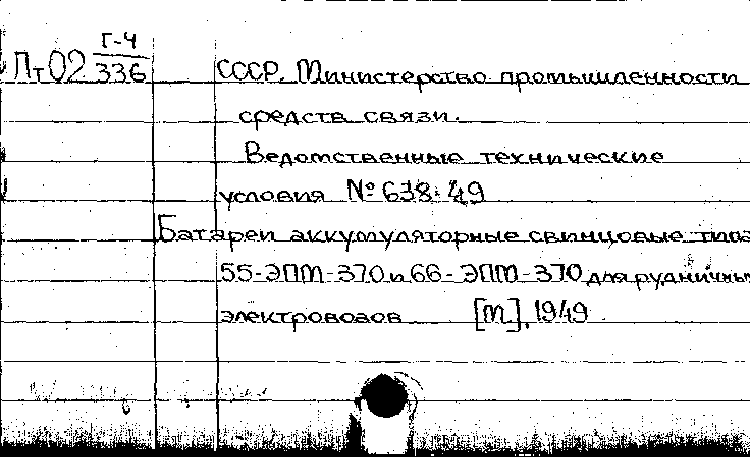 Г-4
Пт02 336
СССР. Министерство промышленности
средств связи.
Ведомственные технические
условия №638-49
Батареи аккумуляторные свинцовые типа
55-ЭПМ-370 и 66-ЭПМ-370 для рудничных
электровозов [М], 1949